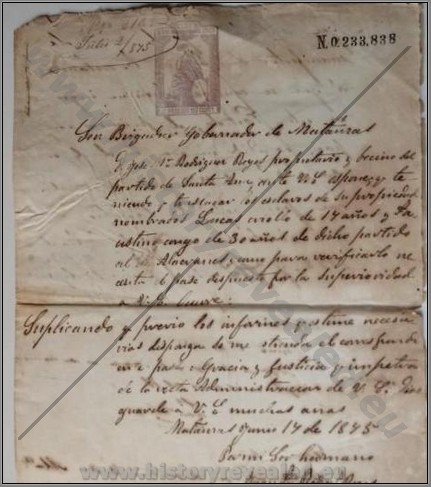 Julio 2/875
N.0.233,838
Sor Brigadier Gobernador de Matanzas
Jose Ma. Rodriguez Reyes propietario y becino del
partido de Santa Ana ante V.E. espone, y te
niendo q trasacar esclavos de su propiedad
nombrados Lucas criollo de 17 años y Fa
ustino congo de 30 años de dicho partido
al de Alacranes y como para verificarlo ne
cesita el pase dispuesto por la superioridad
a V.E.
Suplicando q previo los informes q estime necesa
rios disponga se me estienda el correspondi
ente pase Gracia y justicia q impetra
de la recta Administracion de V.E. Dios
guarde a V.E. muchos años
Matanzas Junio 17 de 1875
Por mi Sor hermano
© www.historyrevealed.eu